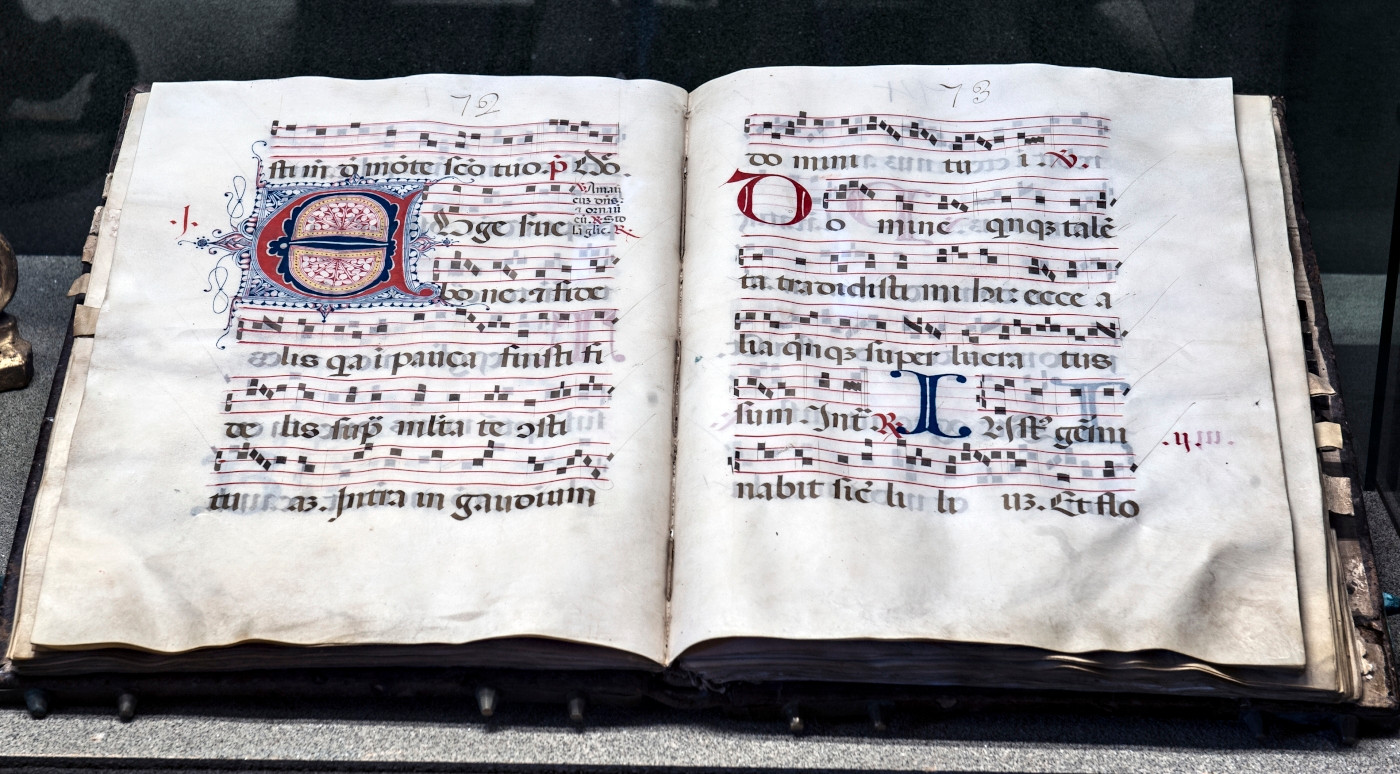 72
sti in d mōte scō tuo. p̄
E Uge sue
bo ne. ⁊ fide
.I.
delis qa i pauca fuisti fi
de lis sup̄ mlta te ↄsti
tu aȝ. Intra in gaudium
73
do mini tu i. V.
D o mine qnqȝ talē
ta tradidisti mi hi: ecce a
lia qnqȝ super lucra tus
sum. Int̄ R. I Vst⁹ gēmi
nabit sic̄ li li uȝ. Et flo
.ii.